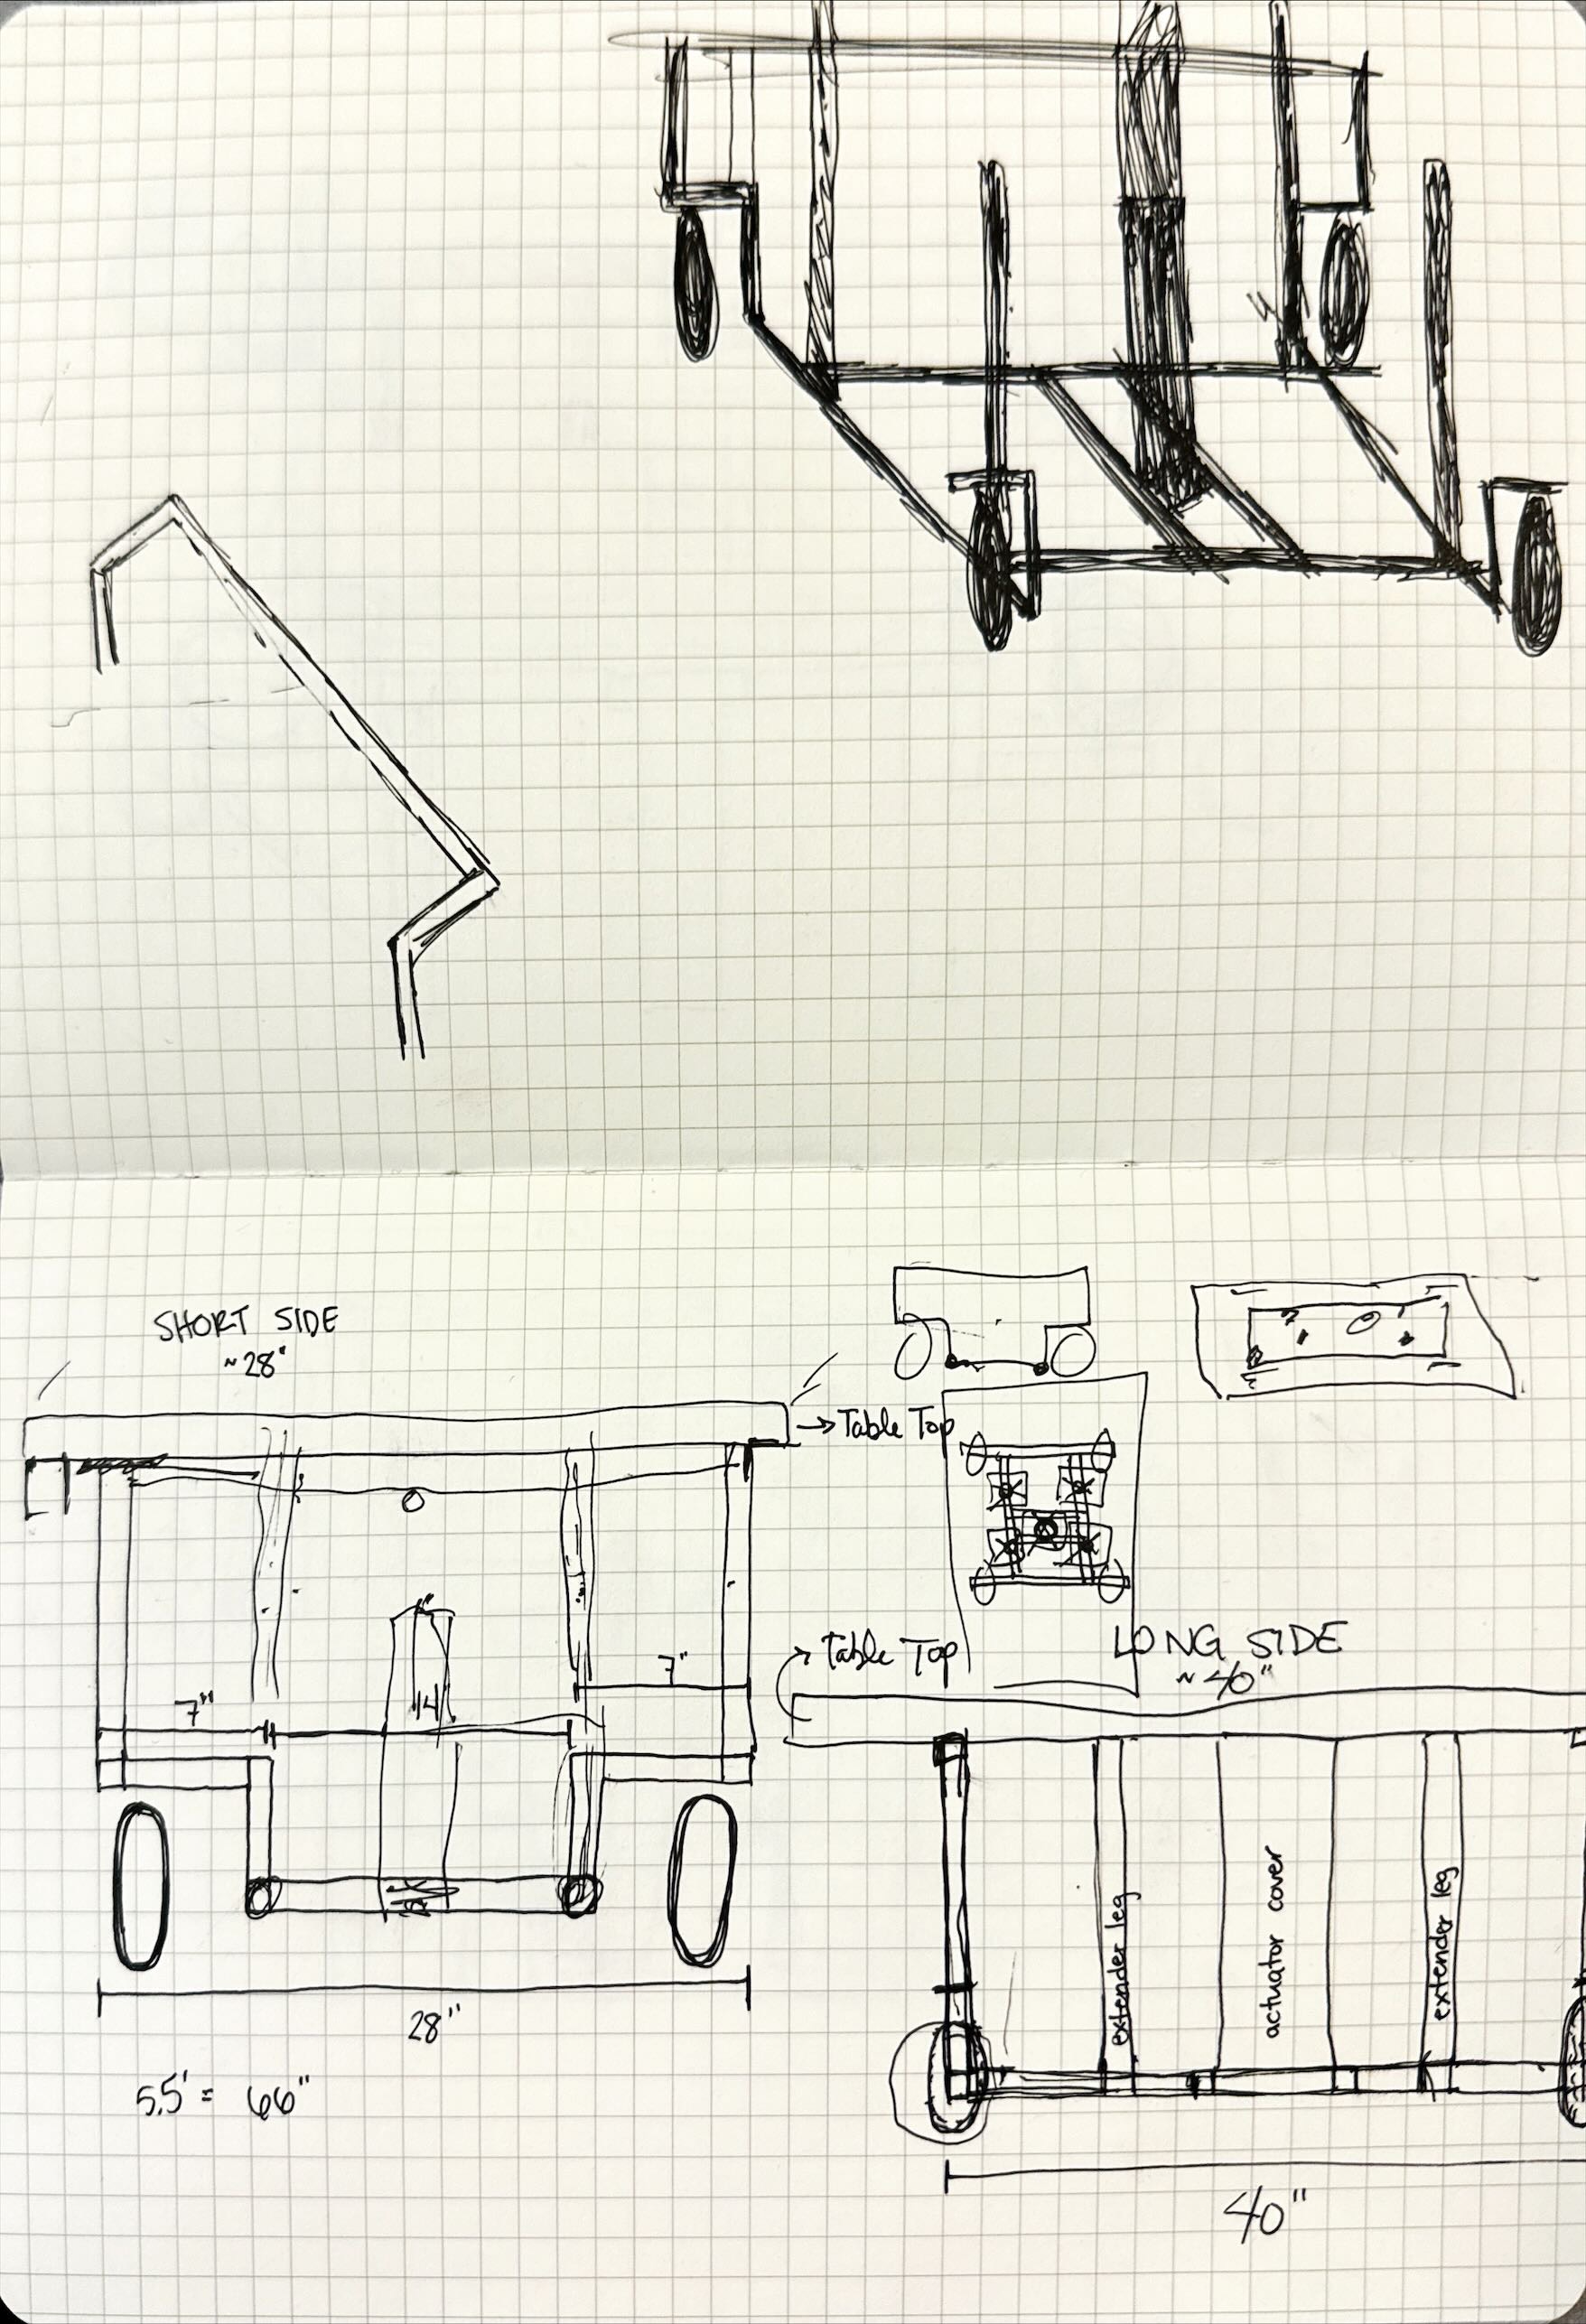 SHORT SIDE
~28"
→ Table Top
7"
14"
7"
28"
5.5' = 66"
Table Top
LONG SIDE
~40"
extender leg
actuator cover
extender leg
40"